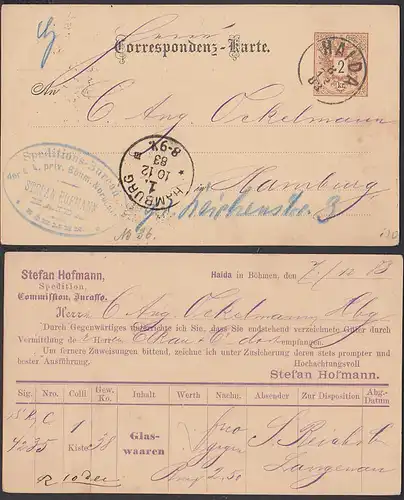 Herrn
Correspondenz-Karte.
HAIDA
2
An C. Aug. Ockelmann
Speditions-Bureau
der k. k. priv. Böhm. Nordbahn
STEFAN HOFMANN
HAMBURG
1.
10 12
83
8-9 V.
in Hamburg
gr. Reichenstr. 3
No 36.
Stefan Hofmann,
Spedition,
Commission, Incasso.
Haida in Böhmen, den 7/12 83
Herrn C. Aug. Ockelmann Hbg
Durch Gegenwärtiges unterrichte ich Sie, dass Sie endstehend verzeichnete Güter durch
Vermittlung der Herren Elkan & Co dort empfangen.
Um fernere Zuweisungen bittend, zeichne ich unter Zusicherung deren stets prompter und
bester Ausführung. Hochachtungsvoll
Stefan Hofmann.
Sig. Nro. Colli Gew. Ko. Inhalt Werth Nachn. Absender Zur Disposition Abg.-Datum
4235 1 Kiste 38 Glas-waaren fco gegen 2.50 S. Reich & Co Langenau